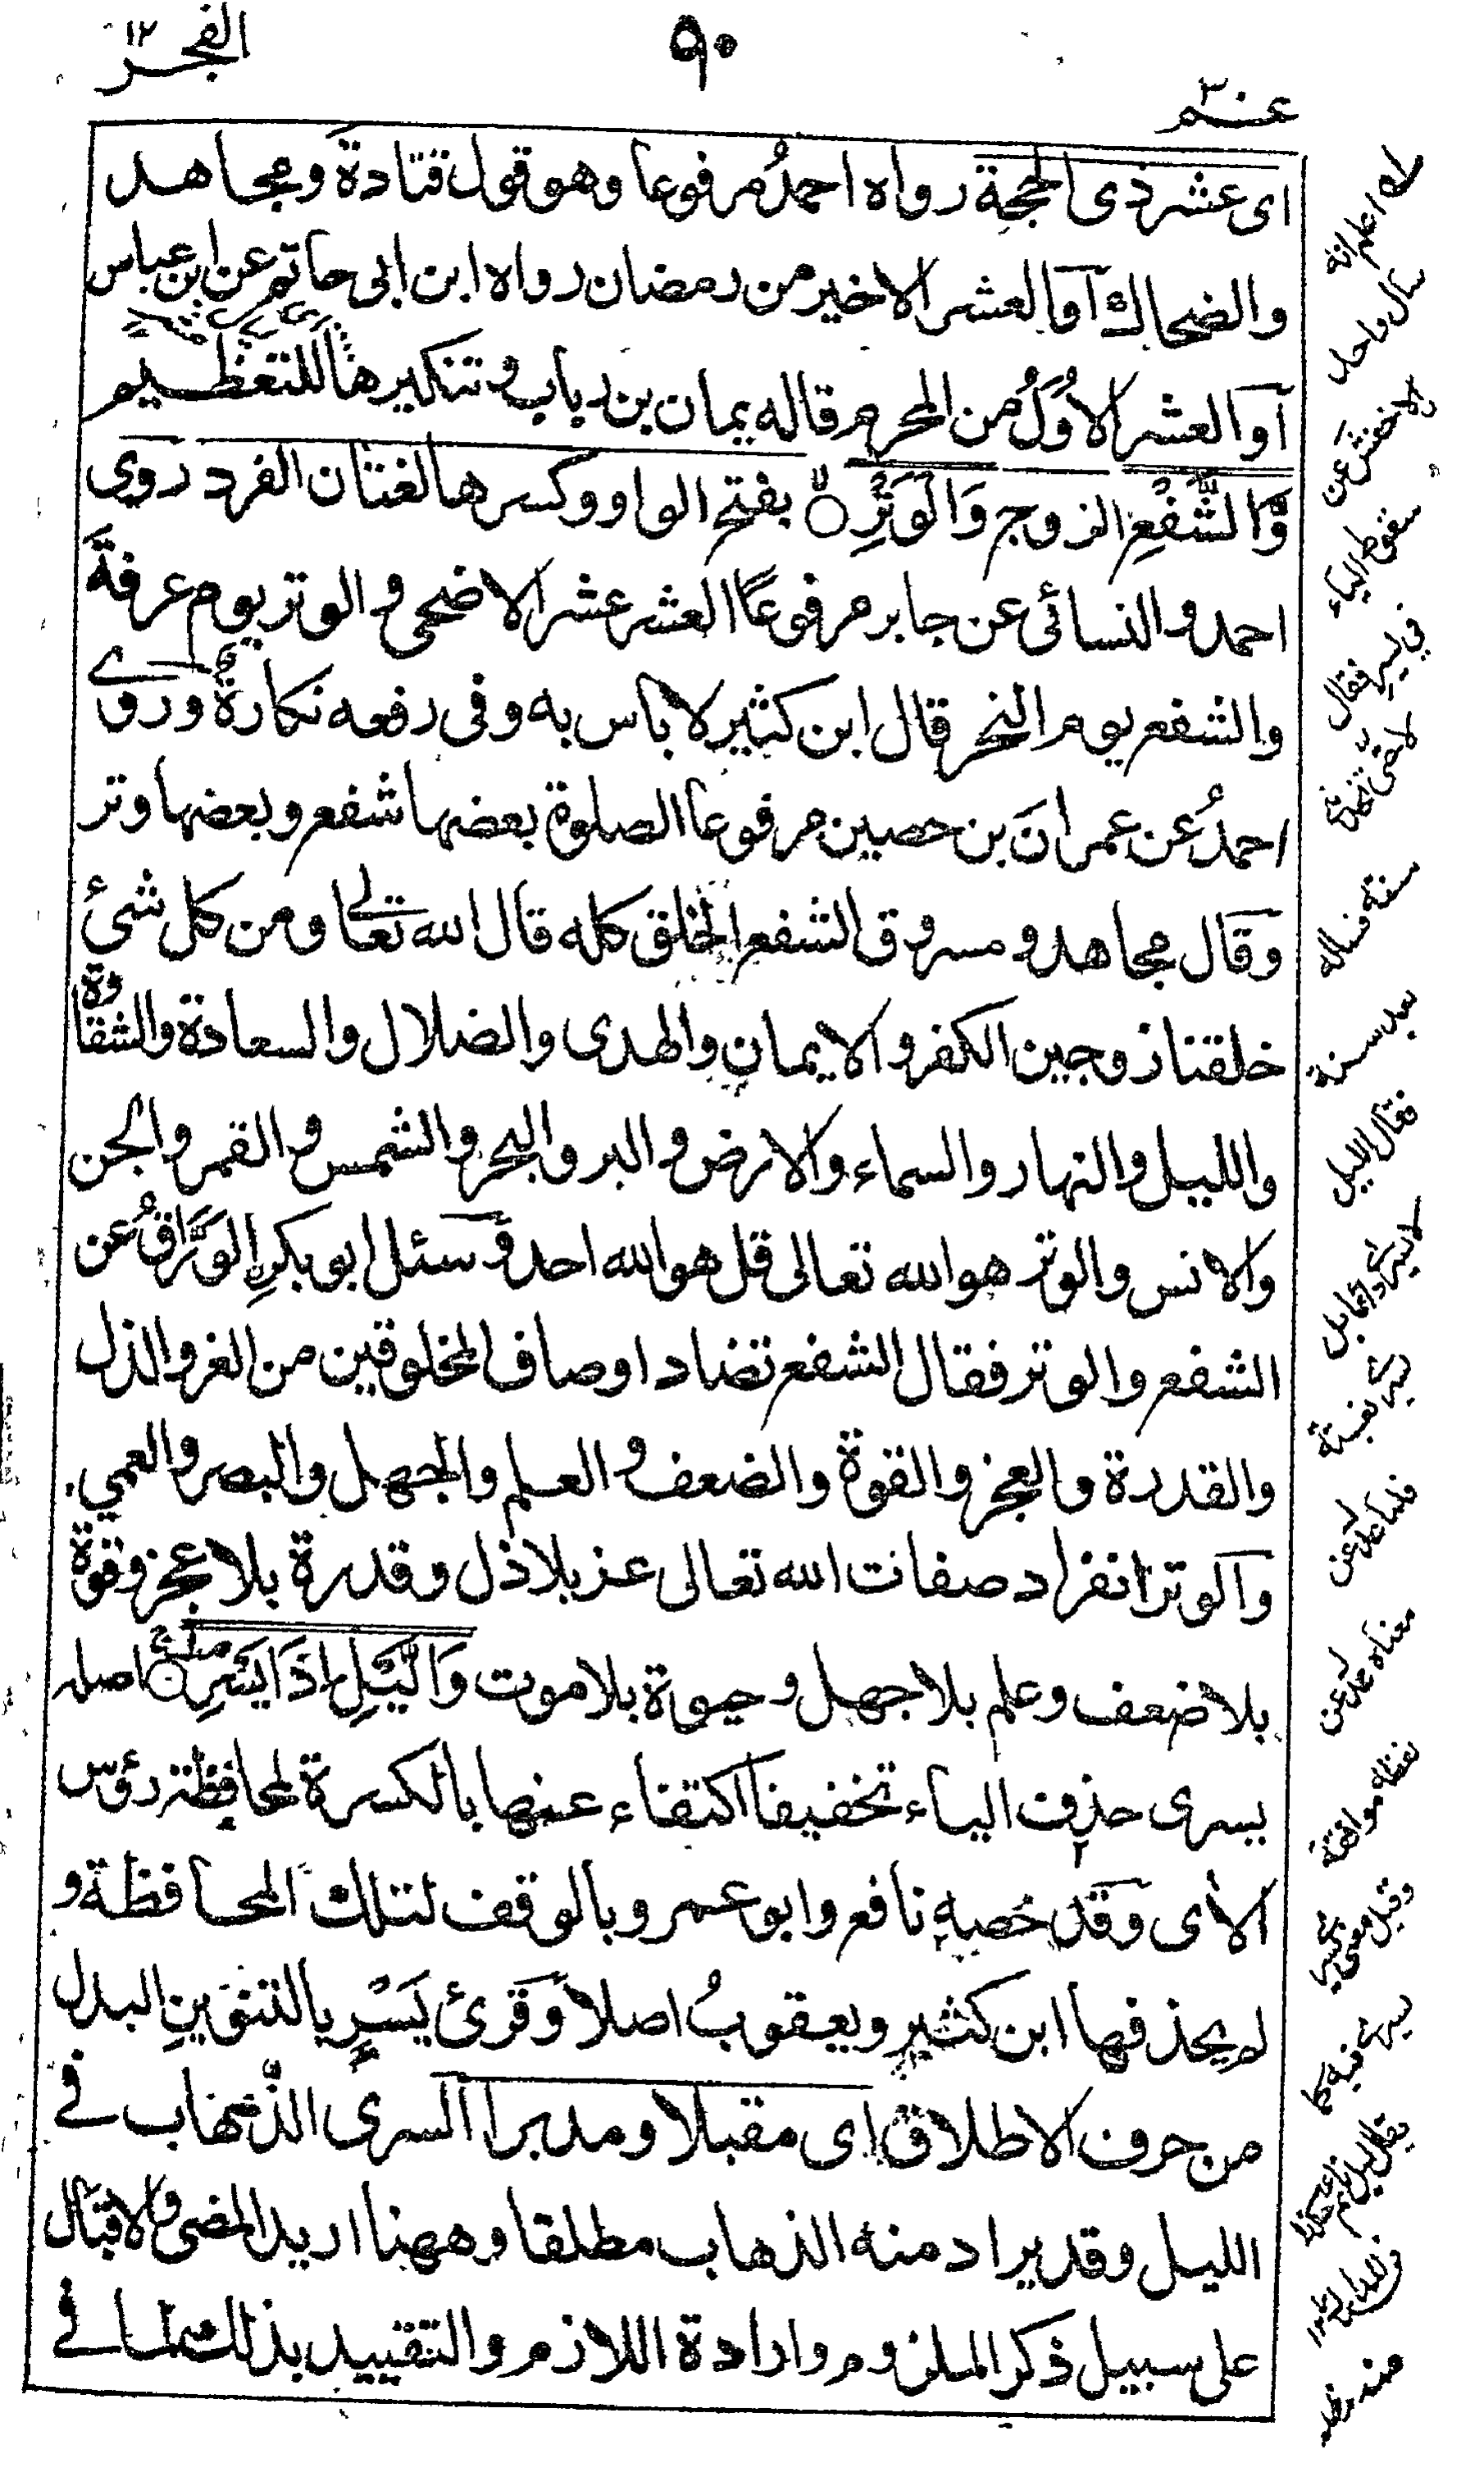 الفجر ١٢
٩٠
عم ٣٠
اى عشر ذى الحجة رواه احمدُ مرفوعا وهو قول قتادةَ ومجاهد
والضحاك اَو العشر الاخير من رمضان رواه ابن ابى حاتم عن ابن عباس
اَو العشر الاُوَلُ من المحرم قاله يمان بن رباب وتنكيرها للتعظيم
وَّالشَّفْعِ الزوج وَالْوَتْرِ ○ بفتح الواو وكسرها لغتان الفرد روى
احمد والنسائى عن جابر مرفوعًا العشر عشر الاضحى والوتر يوم عرفةَ
والشفع يوم النحر قال ابن كثير لا باس به وفى رفعه نكارةٌ وروى
احمدُ عن عمرانَ بن حصين مرفوعا الصلوة بعضها شفع وبعضها وتر
وقال مجاهد ومسروق الشفع الخلق كله قال الله تعالى ومن كل شئ
خلقنا زوجين الكفر والايمان والهدى والضلال والسعادة والشقاوة
والليل والنهار والسماء والارض والبر والبحر والشمس والقمر والجن
والانس والوتر هو الله تعالى قل هو الله احد وسئل ابو بكرِ الوَرَّاقُ عن
الشفع والوتر فقال الشفع تضاد اوصاف المخلوقين من العز والذل
والقدرة والعجز والقوة والضعف والعلم والجهل والبصر والعمى
والوتر انفراد صفات الله تعالى عز بلا ذل وقدرة بلا عجز وقوة
بلا ضعف وعلم بلا جهل وحيوة بلا موت وَالَّيْلِ اِذَا يَسْرِ ○ اصله
يسرى حذفت الياء تخفيفا اكتفاء عنها بالكسرة لمحافظة رؤس
الاٰى وقد خصه نافع وابو عمرو بالوقف لتلك المحافظة و
لم يحذفها ابن كثير ويعقوبُ اصلا وقرئ يَسْرٍ بالتنوينِ البدل
من حرف الاطلاق اى مقبلا ومدبرا السرى الذهاب فى
الليل وقد يراد منه الذهاب مطلقا وههنا اريد المضى والاقبال
على سبيل ذكر الملزوم وارادة اللازم والتقييد بذلك لما فى
سأل واحد
الاخفش عن
سقوط الياء
فى يسر فقال
لا حتى تخدمنى
سنة فساله
بعد سنة
فقال الليل
لا يسرى وانما
يسرى فيه
فلما عدل عن
معناه عدل عن
لفظه موافقة
وقيل معنى يسر
يسرى فيه كما
يقال ليل نائم